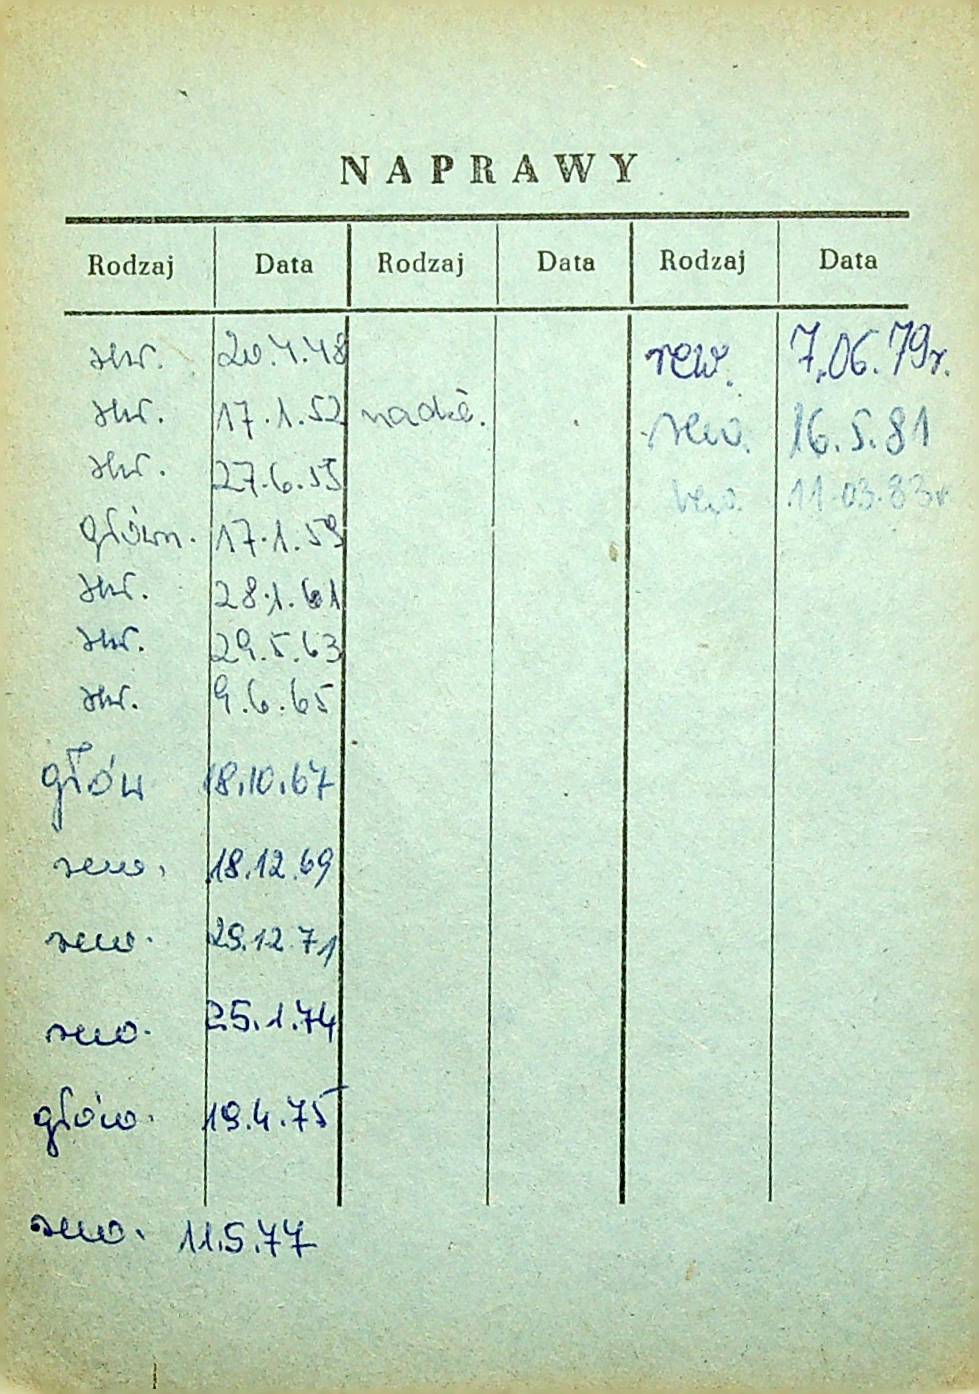 NAPRAWY
Rodzaj Data Rodzaj Data Rodzaj Data
20.4.48 rew. 7.06.79r.
17.1.52 rew. 16.5.81
27.6.55 rew. 11.03.83r
główn. 17.1.59
28.1.61
29.5.63
9.6.65
głów 18.10.67
rew. 18.12.69
rew. 29.12.71
rew. 25.1.74
głów. 19.4.75
rew. 11.5.77